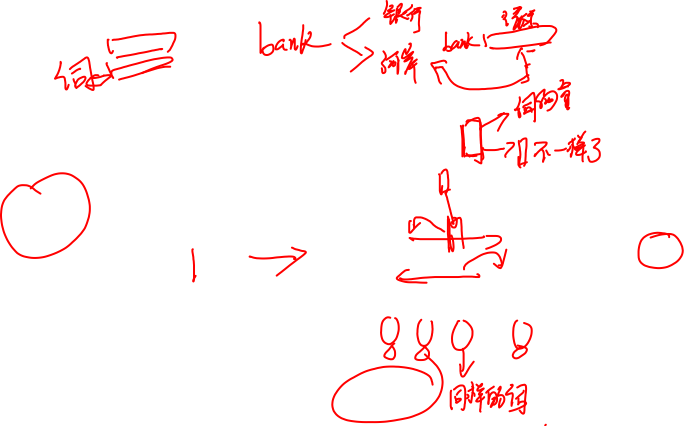 词
bank
银行
河岸
bank
词向量
不一样了
1
同样的词